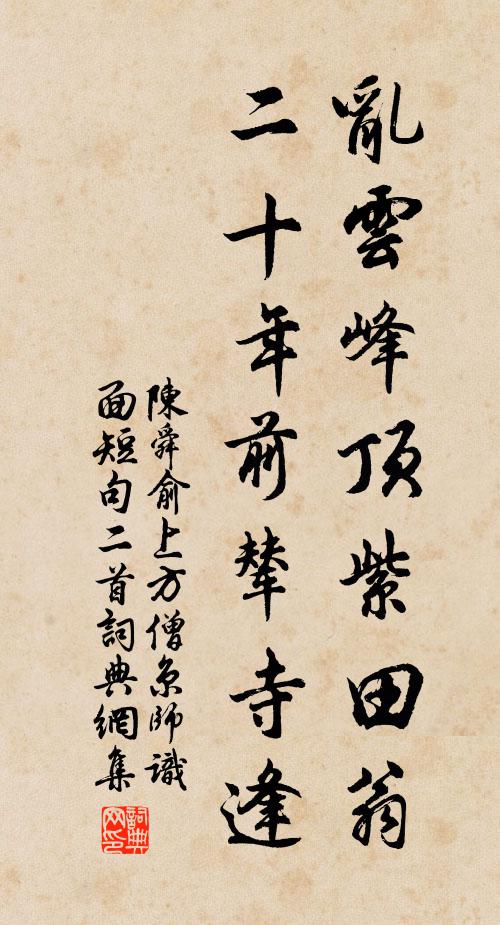 亂雲峰頂紫田翁
二十年前輦寺逢
陳舜俞上方僧京師識
面短句二首詞典網集
詞典网印